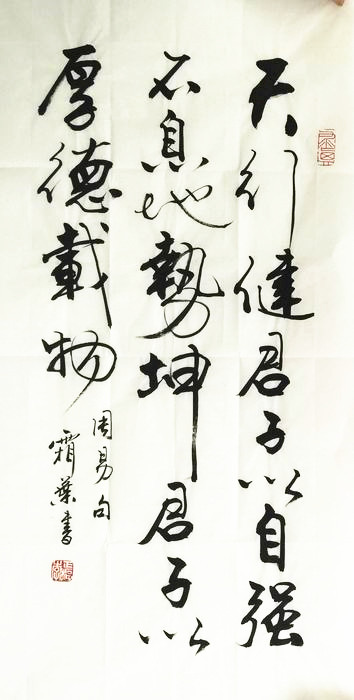 天行健君子以自强
不息地勢坤君子以
厚德載物
周易句
霜葉書